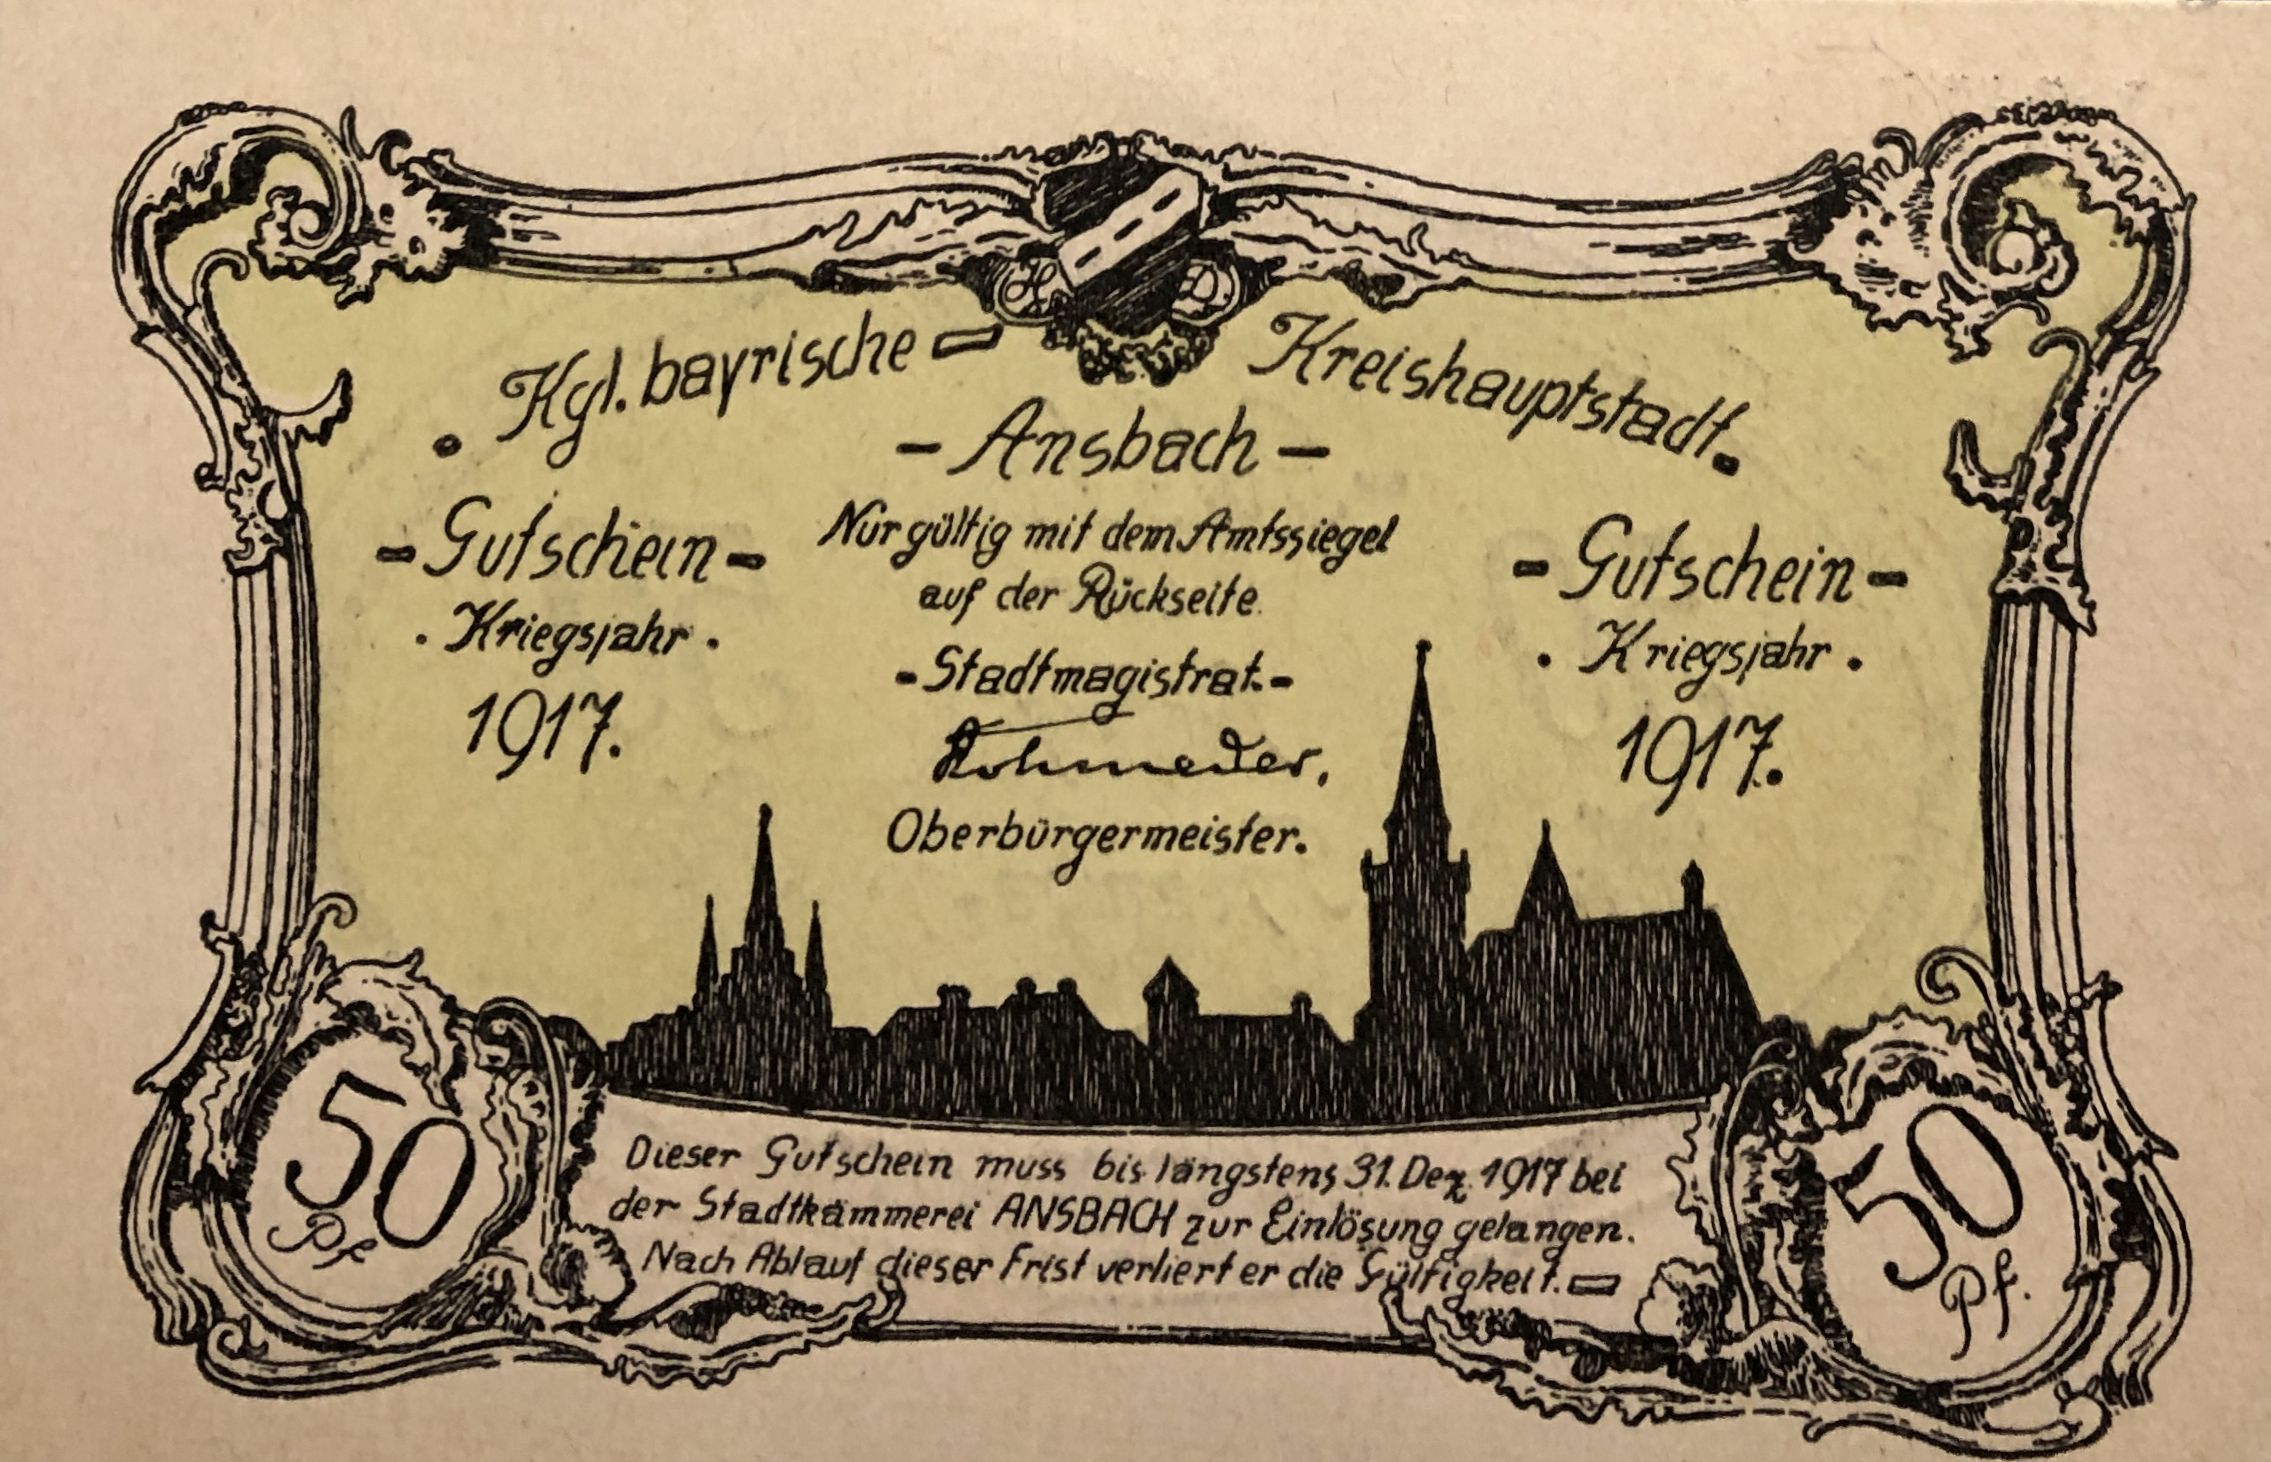 Kgl. bayrische = Kreishauptstadt.
- Ansbach -
- Gutschein -
Kriegsjahr
1917.
Nur gültig mit dem Amtssiegel
auf der Rückseite.
- Stadtmagistrat. -
Rohmeder,
Oberbürgermeister.
- Gutschein -
· Kriegsjahr ·
1917.
50
Pf
Dieser Gutschein muss bis längstens 31. Dez. 1917 bei
der Stadtkämmerei ANSBACH zur Einlösung gelangen.
Nach Ablauf dieser Frist verliert er die Gültigkeit. =
50
Pf.